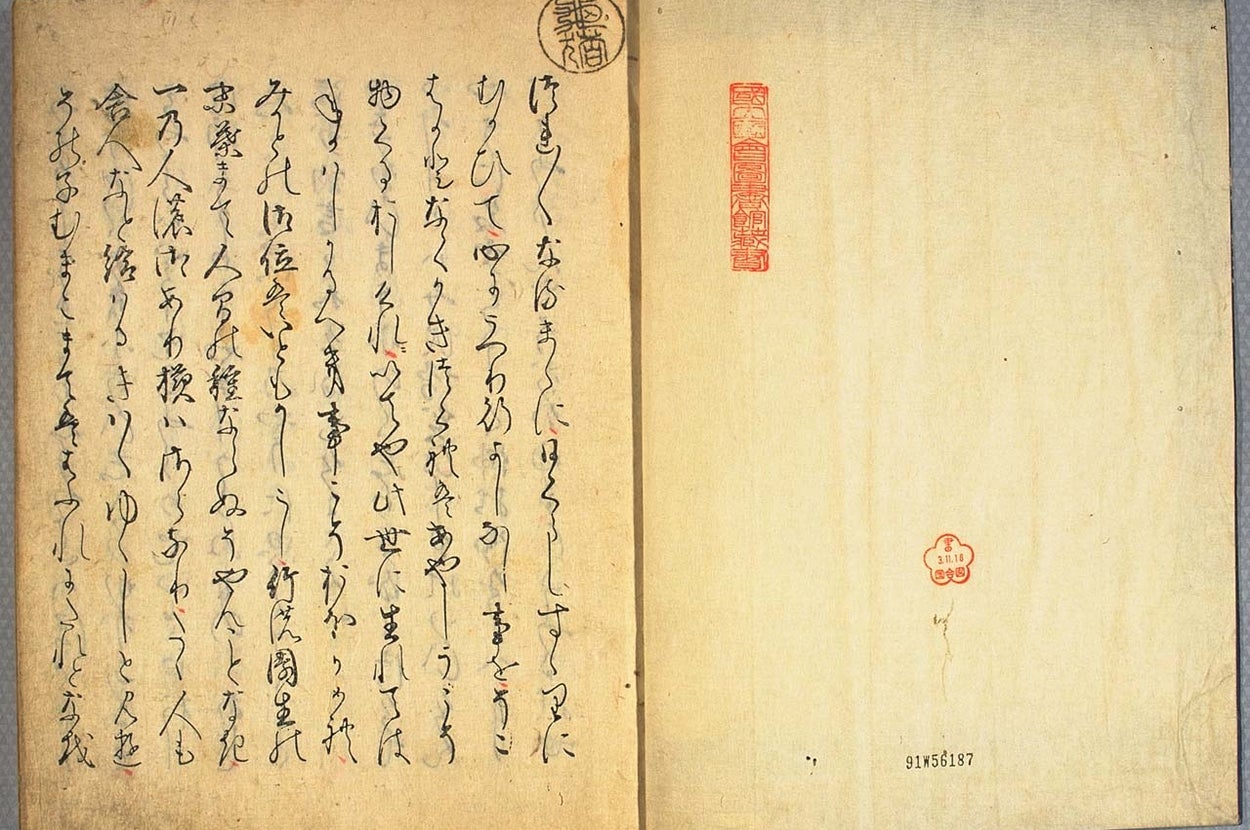 國立國會圖書館藏書
3.11.16
91W56187
つれ〱なるまゝに日くらしすゝりに
むかひて心にうつり行よしなし事をそこ
はかとなくかきつくれはあやしうこそ
物くるおしけれいてや此世に生れては
ねかはしかるへき事こそおほかめれ
みかとの御位はいともかしこし竹の園生の
末葉まて人間の種ならぬそやんことなき
一の人の御あり様ハさらなりたゝ人も
舎人なと給ハるきハゝゆゝしと見ゆ
その子むまこまてははふれにたれとなを